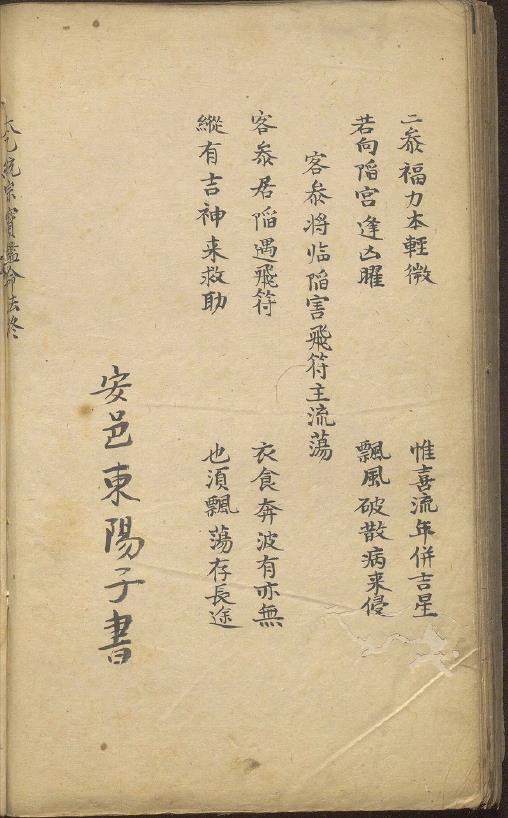 二叅福力本輕微　惟喜流年併吉星
若向陷宮逢凶曜　飄風破散病来侵
客叅将临陷害飛符主流蕩
客叅居陷遇飛符　衣食奔波有亦無
縱有吉神来救助　也須飄蕩存長途
安邑東陽子書
太乙統宗寳鑑命法终